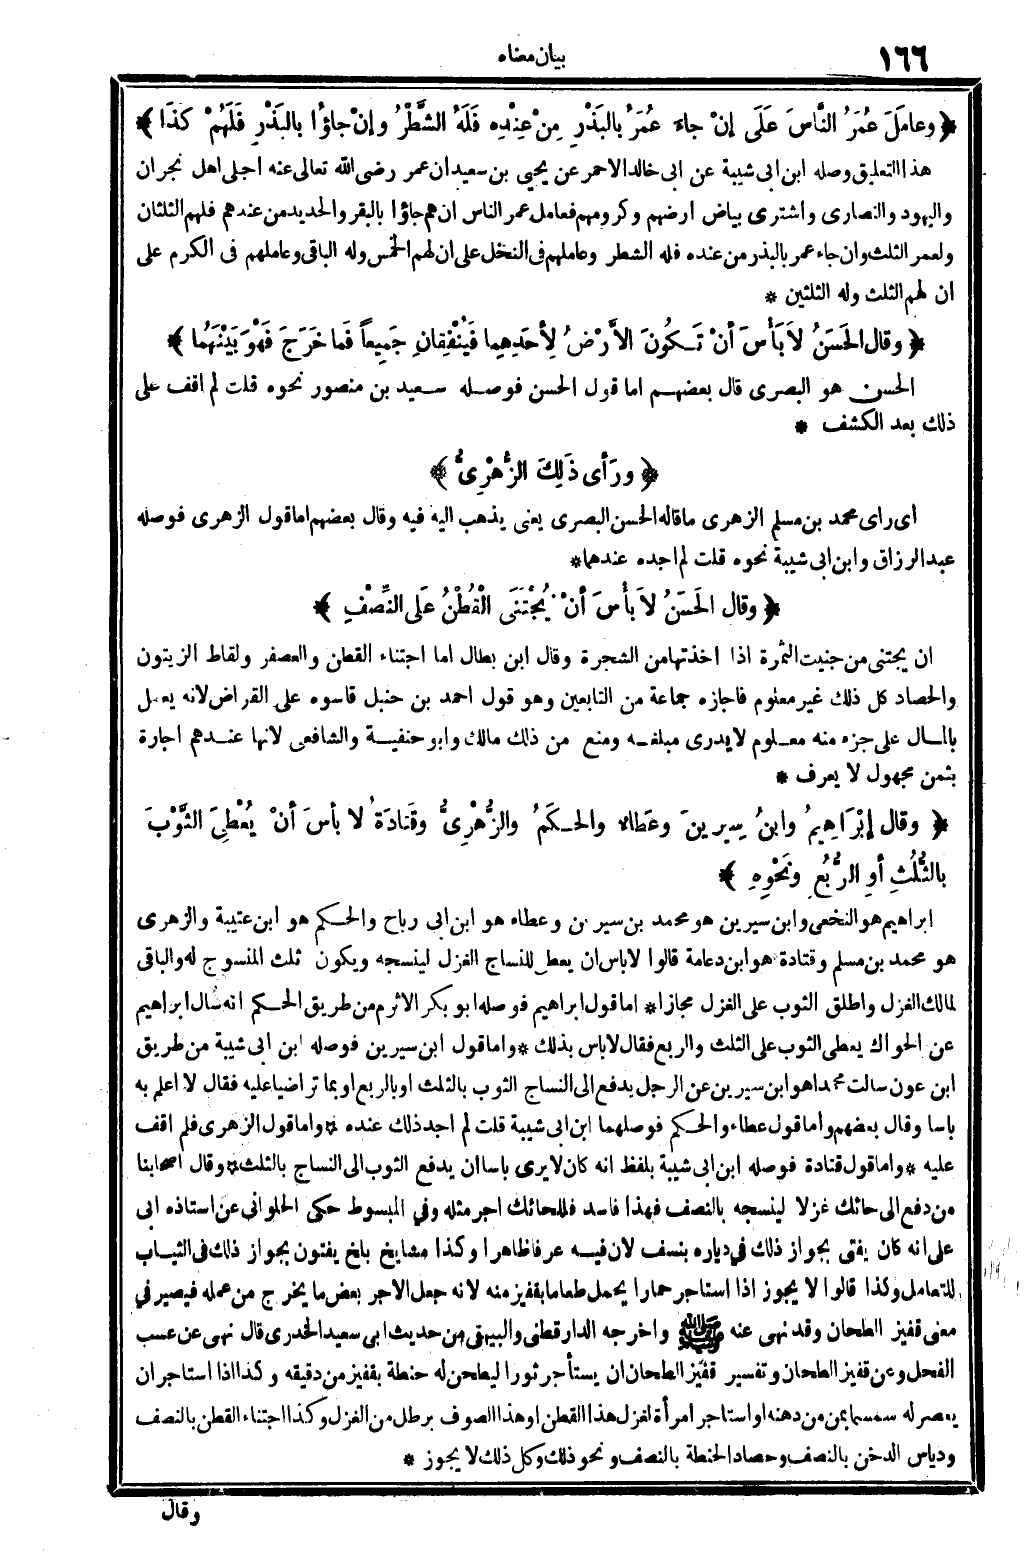 ١٦٦
بيان معناه
﴿ وعامَلَ عُمَرُ النَّاسَ عَلَى إنْ جاءَ عُمَرُ بالبَذْرِ مِنْ عِنْدِهِ فَلَهُ الشَّطْرُ وإنْ جاؤُا بالبَذْرِ فَلَهُمْ كَذَا ﴾
هذا التعليق وصله ابن ابى شيبة عن ابى خالد الاحمر عن يحيى بن سعيد ان عمر رضى الله تعالى عنه اجلى اهل نجران
واليهود والنصارى واشترى بياض ارضهم وكرومهم فعامل عمر الناس ان هم جاؤا بالبقر والحديد من عندهم فلهم الثلثان
ولعمر الثلث وان جاء عمر بالبذر من عنده فله الشطر وعاملهم فى النخل على ان لهم الخمس وله الباقى وعاملهم فى الكرم على
ان لهم الثلث وله الثلثين *
﴿ وقال الحَسَنُ لاَ بَأْسَ أنْ تَكُونَ الأرْضُ لِأحَدِهِما فَيُنْفِقانِ جَمِيعاً فَما خَرَجَ فَهْوَ بَيْنَهُما ﴾
الحسن هو البصرى قال بعضهم اما قول الحسن فوصله سعيد بن منصور نحوه قلت لم اقف على
ذلك بعد الكشف *
﴿ ورَأى ذَلِكَ الزُّهْرِىُّ ﴾
أى راى محمد بن مسلم الزهرى ما قاله الحسن البصرى يعنى يذهب اليه فيه وقال بعضهم اما قول الزهرى فوصله
عبد الرزاق وابن ابى شيبة نحوه قلت لم اجده عندهما *
﴿ وقال الحَسَنُ لاَ بأْسَ أنْ يُجْتَنَى الْقُطْنُ عَلى النِّصْفِ ﴾
ان يجتنى من جنيت الثمرة اذا اخذتها من الشجرة وقال ابن بطال اما اجتناء القطن والعصفر ولقاط الزيتون
والحصاد كل ذلك غير معلوم فاجازه جماعة من التابعين وهو قول احمد بن حنبل قاسوه على القراض لانه يعمل
بالمال على جزء منه معلوم لا يدرى مبلغه ومنع من ذلك مالك وابو حنيفة والشافعى لانها عندهم اجارة
بثمن مجهول لا يعرف *
﴿ وقال إبْرَاهِيمُ وابنُ سِيرِينَ وعَطاءٌ والحَكَمُ والزُّهْرِىُّ وقَتَادَةُ لا بأسَ أنْ يُعْطِىَ الثَّوْبَ
بالثُّلُثِ أوِ الرُّبُعِ ونَحْوِهِ ﴾
ابراهيم هو النخعى وابن سيرين هو محمد بن سيرين وعطاء هو ابن ابى رباح والحكم هو ابن عتيبة والزهرى
هو محمد بن مسلم وقتادة هو ابن دعامة قالوا لا باس ان يعطى للنساج الغزل لينسجه ويكون ثلث المنسوج له والباقى
لمالك الغزل واطلق الثوب على الغزل مجازا * اما قول ابراهيم فوصله ابو بكر الاثرم من طريق الحكم انه سال ابراهيم
عن الحواك يعطى الثوب على الثلث والربع فقال لا باس بذلك * واما قول ابن سيرين فوصله ابن ابى شيبة من طريق
ابن عون سالت محمدا هو ابن سيرين عن الرجل يدفع الى النساج الثوب بالثلث او بالربع او بما تراضيا عليه فقال لا اعلم به
باسا وقال بعضهم وأما قول عطاء والحكم فوصلهما ابن ابى شيبة قلت لم اجد ذلك عنده * واما قول الزهرى فلم اقف
عليه * واما قول قتادة فوصله ابن ابى شيبة بلفظ انه كان لا يرى باسا ان يدفع الثوب الى النساج بالثلث * وقال اصحابنا
من دفع الى حائك غزلا لينسجه بالنصف فهذا فاسد فللحائك اجر مثله وفي المبسوط حكى الحلوانى عن استاذه ابى
على انه كان يفتى بجواز ذلك في دياره بنسف لان فيه عرفا ظاهرا وكذا مشايخ بلخ يفتون بجواز ذلك فى الثياب
للتعامل وكذا قالوا لا يجوز اذا استاجر حمارا يحمل طعاما بقفيز منه لانه جعل الاجر بعض ما يخرج من عمله فيصير في
معنى قفيز الطحان وقد نهى عنه ﷺ واخرجه الدارقطنى والبيهقى من حديث ابى سعيد الخدرى قال نهى عن عسب
الفحل وعن قفيز الطحان وتفسير قفيز الطحان ان يستأجر ثورا ليطحن له حنطة بقفيز من دقيقه وكذا اذا استاجر ان
يعصر له سمسما بمن من دهنه او استاجر امرأة لغزل هذا القطن او هذا الصوف برطل من الغزل وكذا اجتناء القطن بالنصف
ودياس الدخن بالنصف وحصاد الحنطة بالنصف ونحو ذلك وكل ذلك لا يجوز *
وقال